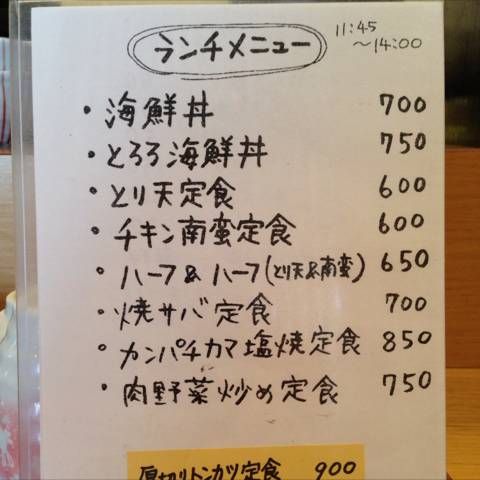 ランチメニュー 11:45
～14:00
・海鮮丼 700
・とろろ海鮮丼 750
・とり天定食 600
・チキン南蛮定食 600
・ハーフ&ハーフ(とり天&南蛮) 650
・焼サバ定食 700
・カンパチカマ塩焼定食 850
・肉野菜炒め定食 750
厚切りトンカツ定食 900